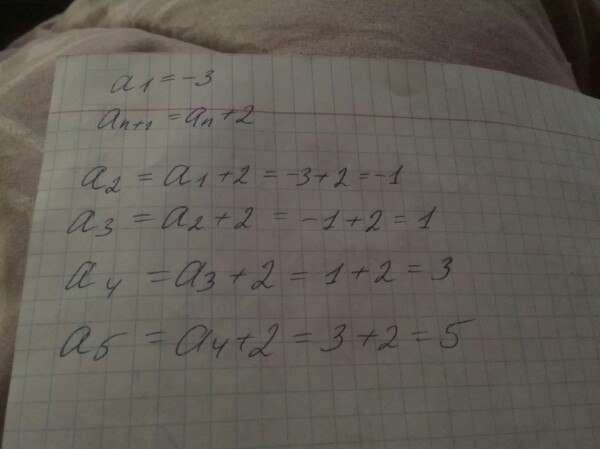 a₁ = -3
aₙ₊₁ = aₙ + 2
a₂ = a₁ + 2 = -3 + 2 = -1
a₃ = a₂ + 2 = -1 + 2 = 1
a₄ = a₃ + 2 = 1 + 2 = 3
a₅ = a₄ + 2 = 3 + 2 = 5